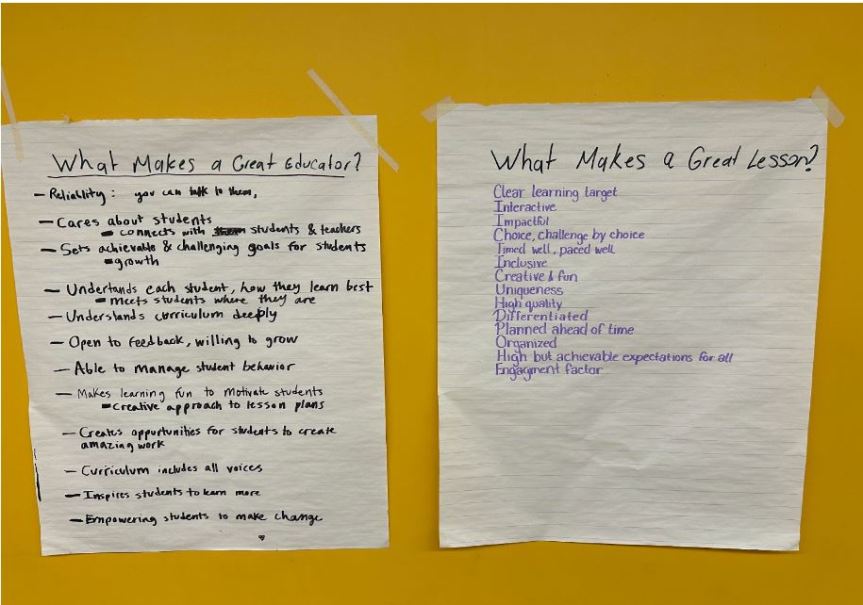 What Makes a Great Educator?
- Reliablity: you can talk to them,
- Cares about students
- connects with students & teachers
- Sets achievable & challenging goals for students
- growth
- Undertands each student, how they learn best
- meets students where they are
- Understands curriculum deeply
- Open to feedback, willing to grow
- Able to manage student behavior
- Makes learning fun to motivate students
- creative approach to lesson plans
- Creates oppurtunities for students to create
amazing work
- Curriculum includes all voices
- Inspires students to learn more
- Empowering students to make change
What Makes a Great Lesson?
Clear learning target
Interactive
Impactful
Choice, challenge by choice
Timed well, paced well
Inclusive
Creative & fun
Uniqueness
High quality
Differentiated
Planned ahead of time
Organized
High but achievable expectations for all
Engagment factor